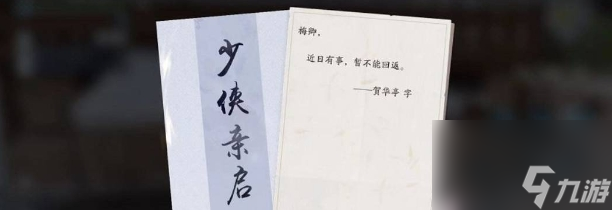 少侠亲启
梅卿，
近日有事，暂不能回返。
——贺华亭 字
九游